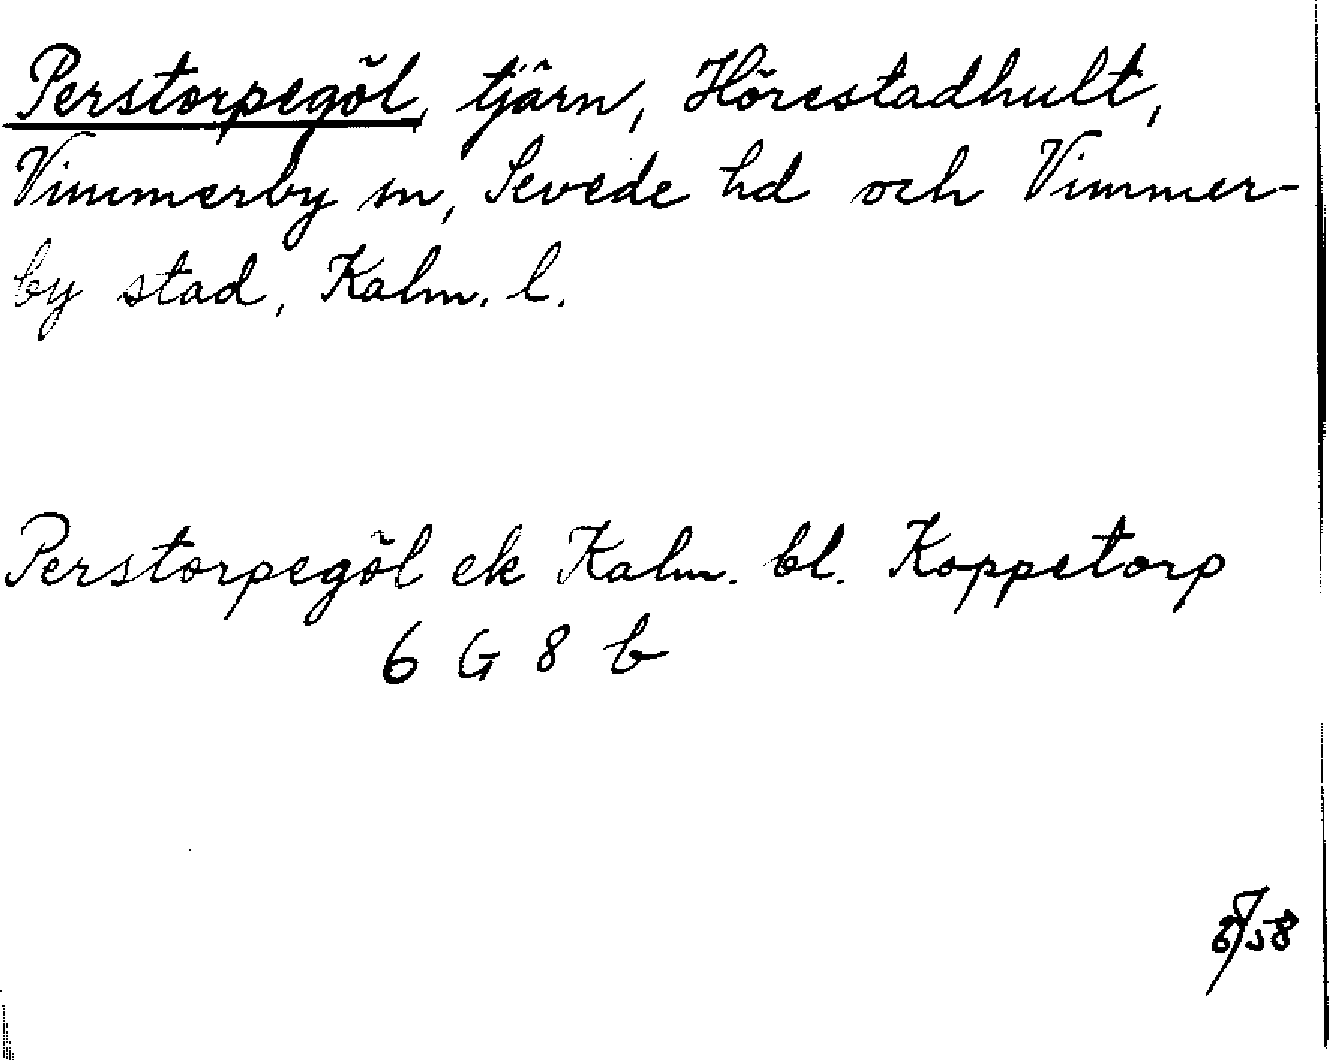 Perstorpegöl, tjärn, Hörestadhult,
Vimmerby sn, Sevede hd och Vimmer-
by stad, Kalm. l.
Perstorpegöl ek Kalm. bl. Koppetorp
6 G 8 b